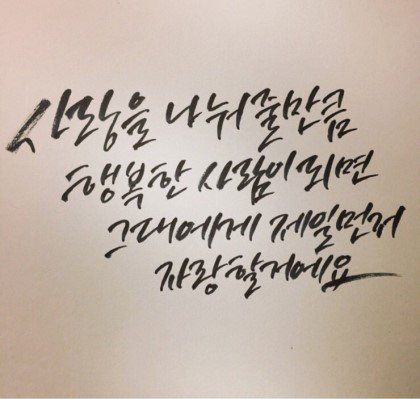 사랑을 나눠 줄만큼
행복한 사람이 되면
그대에게 제일먼저
자랑할거에요